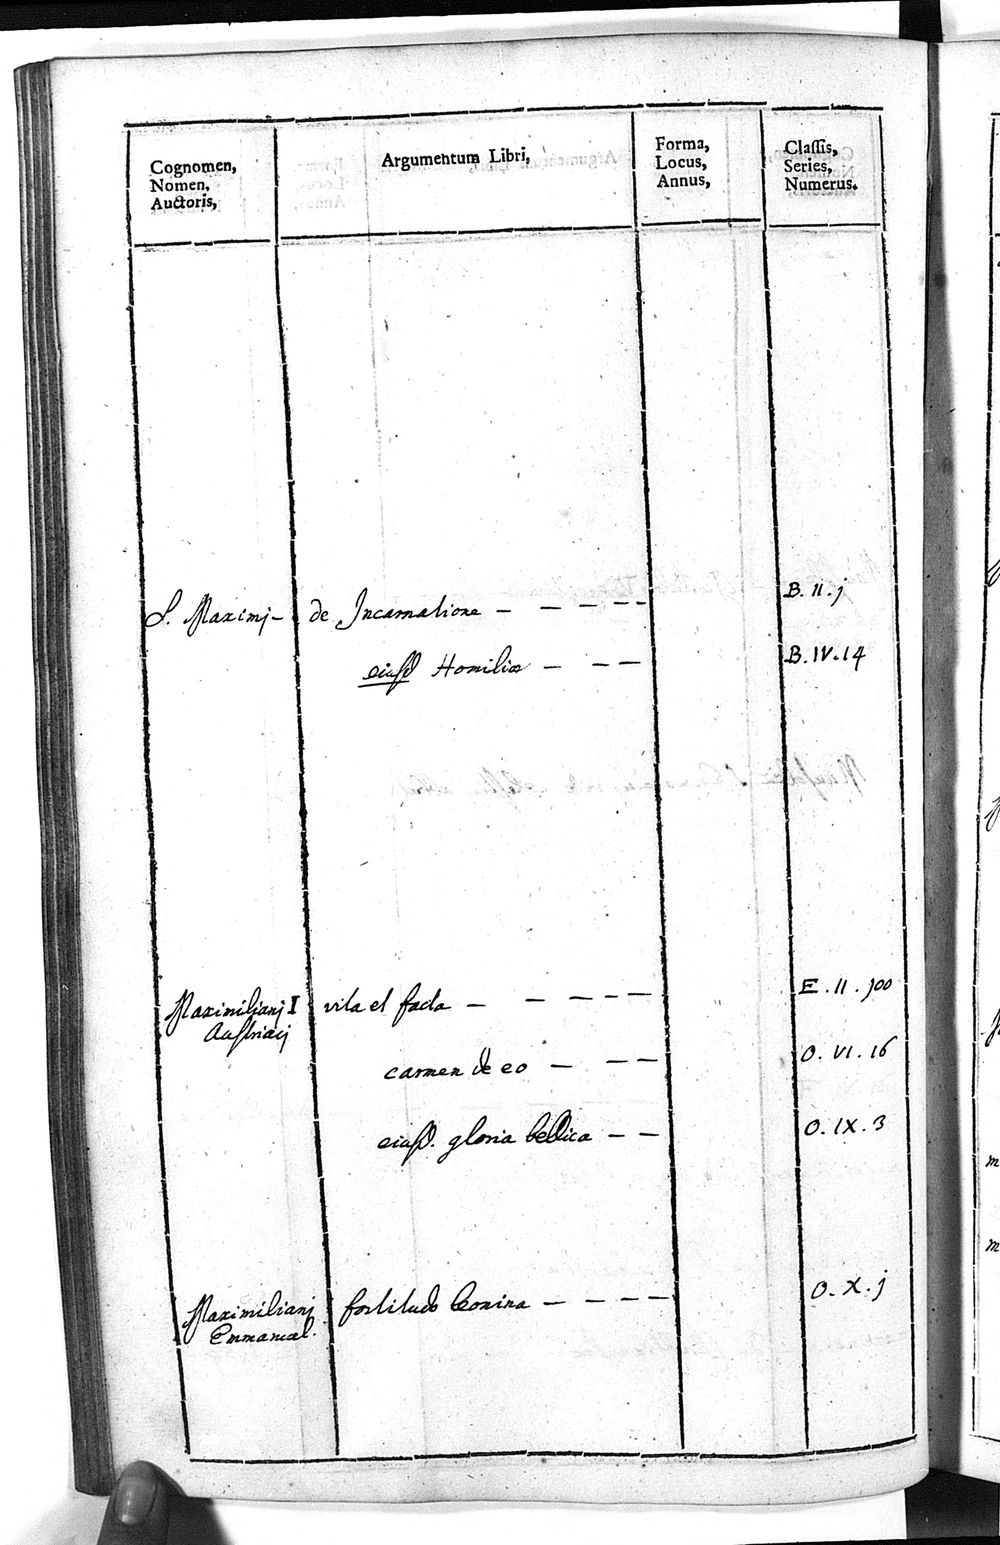 Cognomen,
Nomen,
Auctoris,
Argumentum Libri,
Forma,
Locus,
Annus,
Classis,
Series,
Numerus.
S. Maximj - de Incarnatione - - - - - B. II. j
eiusd Homiliæ - - - B. IV. 14
Maximilianj I vita et facta - - - - - E. II. j00
Austriacj
carmen de eo - - - O. VI. 16
eiusd. gloria bellica - - O. IX. 3
Maximilianj fortitudo leonina - - - - O. X. j
Emmanuel.